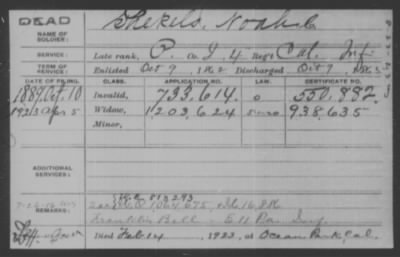 DEAD
NAME OF SOLDIER: Shekels, Noah C
SERVICE: Late rank, P. Co. I, 4 Reg't Cal. Inf.
TERM OF SERVICE: Enlisted Oct 7 186 Discharged Oct 7
DATE OF FILING. CLASS. APPLICATION NO. LAW. CERTIFICATE NO.
1889 Oct. 10 Invalid, 733,614. 0 550,882
1923 Apr 5 Widow, 1203,624 938,635
Minor,
ADDITIONAL SERVICES:
813293
REMARKS: 1064,675
Franklin Bell - E 11 Pa. Inf.
Died Feb. 14, 1923, at Ocean Park, Cal.